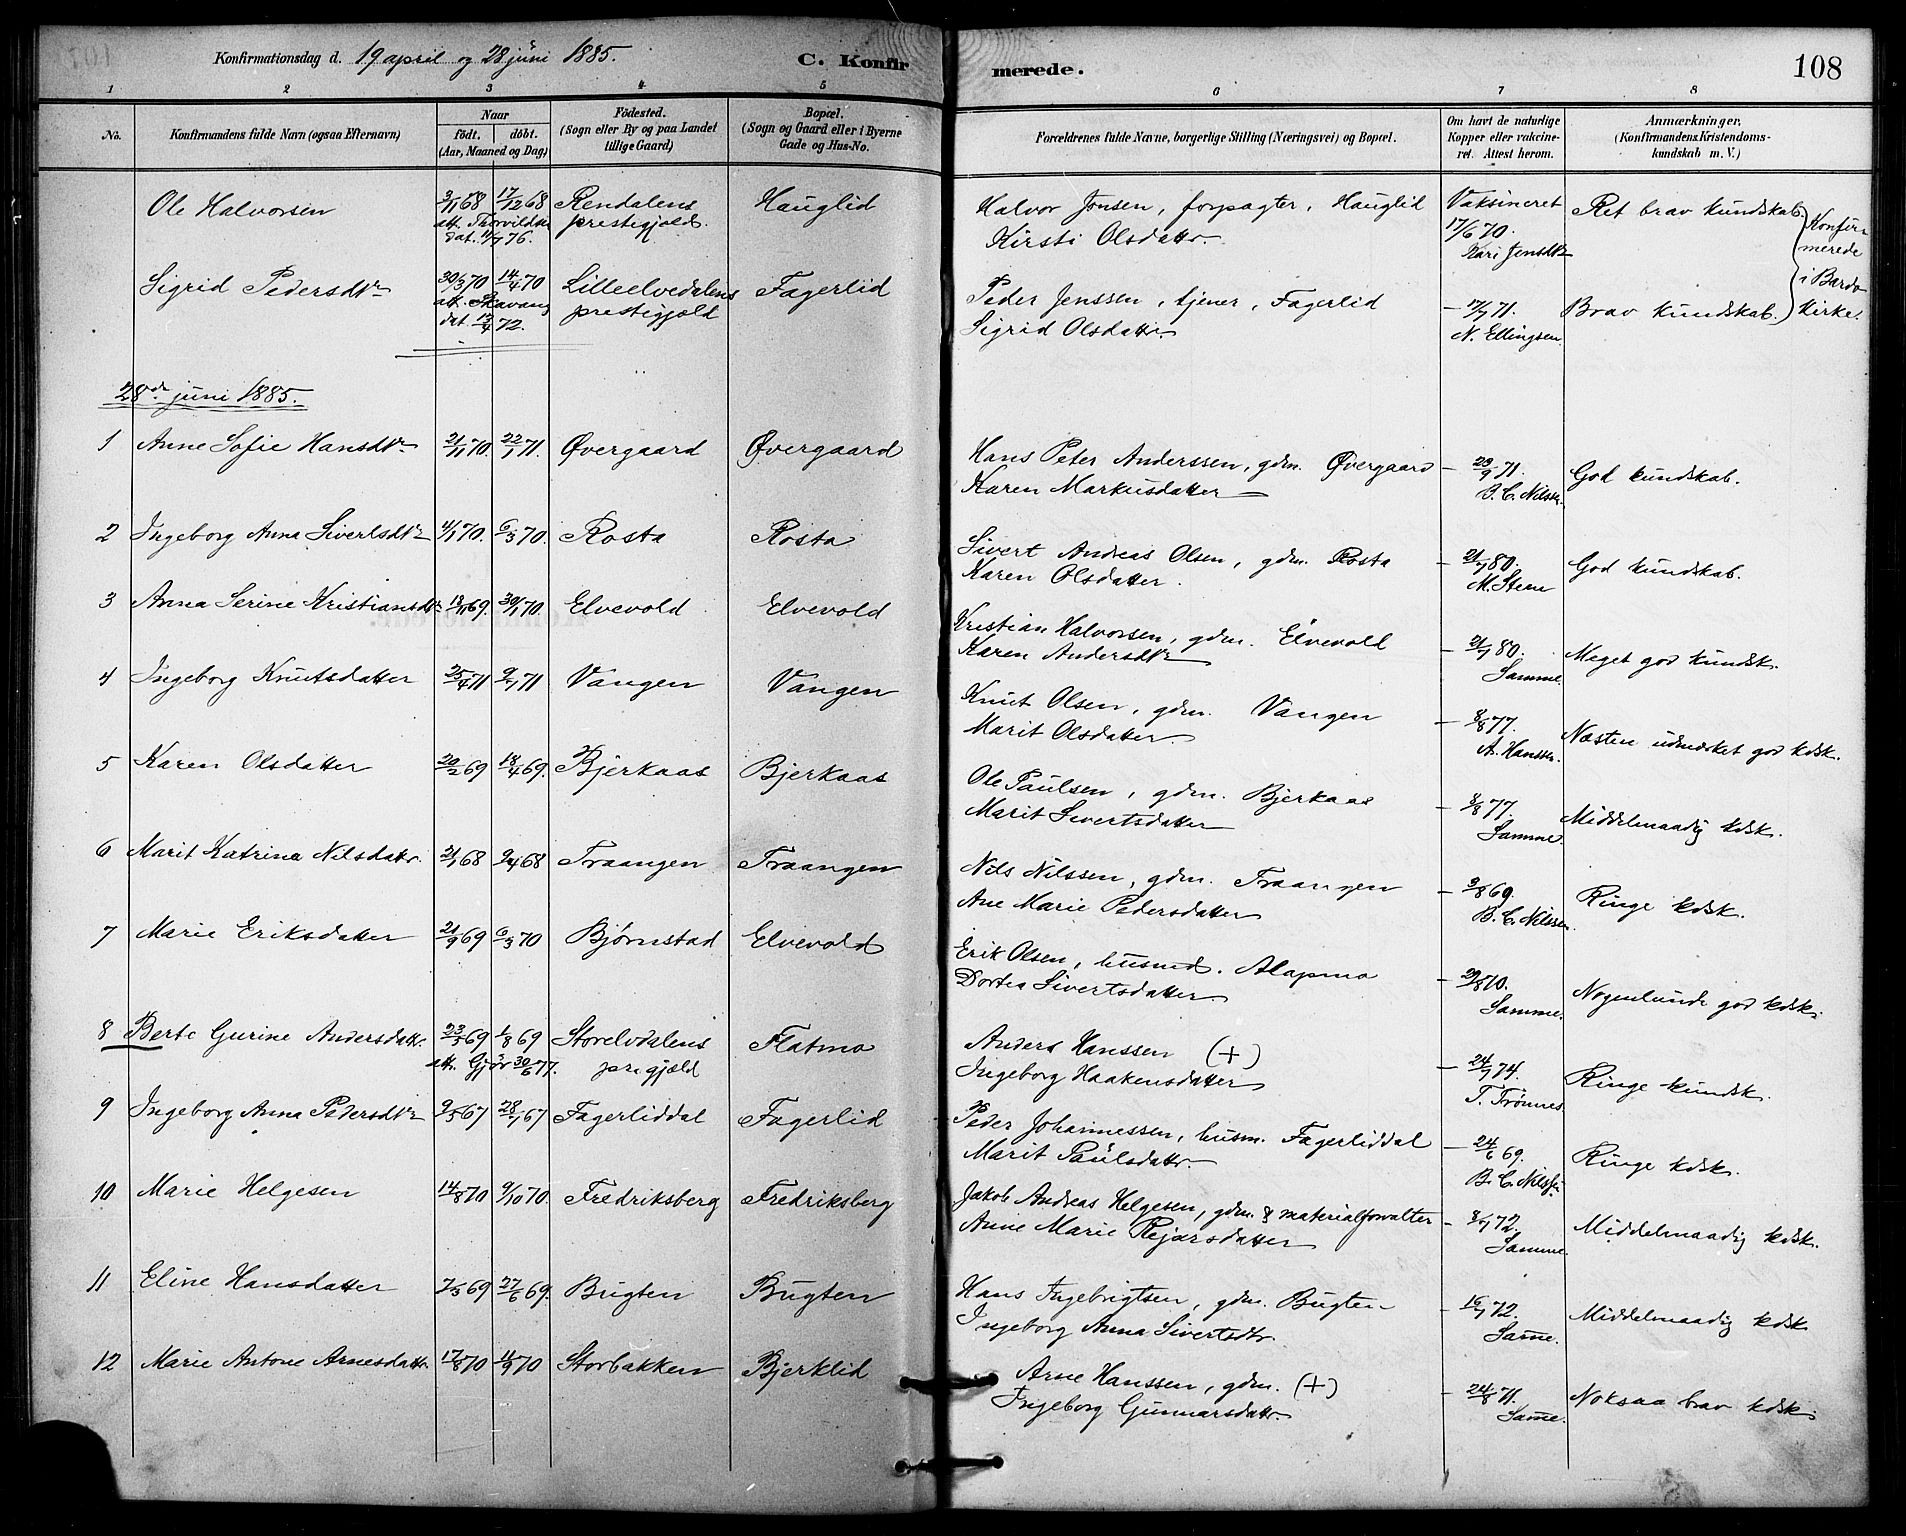 Konfirmationsdag d. 19 april og 28 juni 1885. C. Konfirmerede. 108
1 2 3 4 5 6 7 8
No. Konfirmandens fulde Navn (ogsaa Efternavn) Naar født, døbt. (Aar, Maaned og Dag) Fødested. (Sogn eller By og paa Landet tillige Gaard) Bopæl. (Sogn og Gaard eller i Byerne Gade og Hus-No. Forældrenes fulde Navne, borgerlige Stilling (Næringsvei) og Bopæl. Om havt de naturlige Kopper eller vakcineret. Attest herom. Anmærkninger, (Konfirmandens Kristendomskundskab m. V.)
Ole Halvorsen 3/11 68 17/12 68 Rendalens Hauglid Halvor Jonsen, forpagter, Hauglid Vaksineret Ret brav kundskab. Konfirmerede i Bardo kirke.
dat. 11/7 76. prestegjeld. Kirsti Olsdattr. 17/6 70. Kari Jensdtr
Sigrid Pedersdtr 30/3 70 14/4 70 Lilleelvedalens Fagerlid Peder Jenssen, tjener, Fagerlid – 17/7 71. Brav kundskab.
att. Skavang dat. 12/4 72. prestigjeld Sigrid Olsdatter. N. Ellingsen.
28de juni 1885.
1 Anne Sofie Hansdtr 21/11 70. 22/1 71. Øvergaard Øvergaard Hans Peter Anderssen, gdm. Øvergaard – 23/9 71. God kundskab.
Karen Markusdatter B. C. Nilssen.
2 Ingeborg Anna Sivertsdtr 4/1 70. 6/3 70. Rosta Rosta Sivert Andreas Olsen, gdm. Rosta – 21/7 80. God kundskab.
Karen Olsdatter. M. Stene
3 Anna Serine Kristiansdtr 13/11 69. 30/1 70. Elvevold Elvevold Kristian Halvorsen, gdm. Elvevold – 21/7 80. Meget god kundsk.
Karen Andersdtr Samme.
4 Ingeborg Knutsdatter 25/4 71 9/7 71 Vangen Vangen Knut Olsen, gdm. Vangen – 8/8 77. Næsten udmærket god kdsk.
Marit Olsdatter. A. Hanssen.
5 Karen Olsdatter 20/2 69 18/4 69. Bjerkaas Bjerkaas Ole Paulsen, gdm. Bjerkaas – 8/8 77. Middelmaadig kdsk.
Marit Sivertsdatter Samme.
6 Marit Katrina Nilsdattr. 21/1 68 9/4 68 Traangen Traangen Nils Nilssen, gdm. Traangen – 3/8 69. Ringe kdsk.
Ane Marie Pedersdatter B. C. Nilssen.
7 Marie Eriksdatter 21/9 69 6/3 70 Bjørnstad Elvevold Erik Olsen, husmd. Alapmo – 29/8 70. Nogenlunde god kdsk.
Dortea Sivertsdatter Samme.
8 Berte Gurine Andersdattr. 23/5 69 1/8 69 Storelvdalens Flatmo Anders Hanssen (+) – 24/7 74. Ringe kundsk.
att. Gjør 30/6 77. pregjæld Ingeborg Haakensdatter T. Trønnes.
9 Ingeborg Anna Pedersdtr 9/5 67 28/7 67 Fagerliddal Fagerlid Peder Johannessen, husm. Fagerliddal – 24/6 69. Ringe kdsk.
Marit Paulsdattr. B. C. Nilssen
10 Marie Helgesen 14/8 70 9/10 70. Fredriksberg Fredriksberg Jakob Andreas Helgesen, gdm. & materialforvalter – 8/7 72. Middelmaadig kdsk.
Anne Marie Rejersdatter Samme.
11 Eline Hansdatter 7/5 69 27/6 69. Bugten Bugten Hans Ingebrigtsen, gdm. Bugten – 16/7 72. Middelmaadig kdsk
Ingeborg Anna Sivertsdtr. Samme.
12 Marie Antone Arnesdattr. 17/8 70 11/9 70 Storbakken Bjerklid Arne Hanssen, gdm. (+) – 24/8 71. Noksaa brav kdsk.
Ingeborg Gunnarsdattr. Samme.